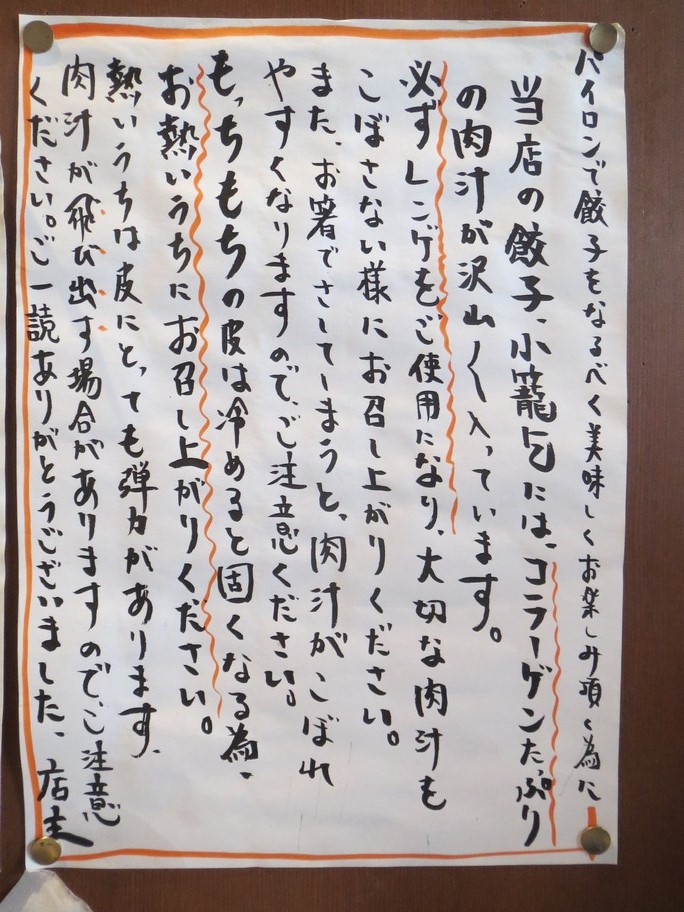 パイロンで餃子をなるべく美味しくお楽しみ頂く為に
当店の餃子、小籠包には、コラーゲンたっぷり
の肉汁が沢山〱入っています。
必ずレンゲをご使用になり、大切な肉汁を
こぼさない様にお召し上がりください。
また、お箸でさしてしまうと、肉汁がこぼれ
やすくなりますので、ご注意ください。
もっちもちの皮は冷めると固くなる為、
お熱いうちにお召し上がりください。
熱いうちは皮にとっても弾力があります、
肉汁が飛び出す場合がありますので、ご注意
ください。ご一読ありがとうございました、店主